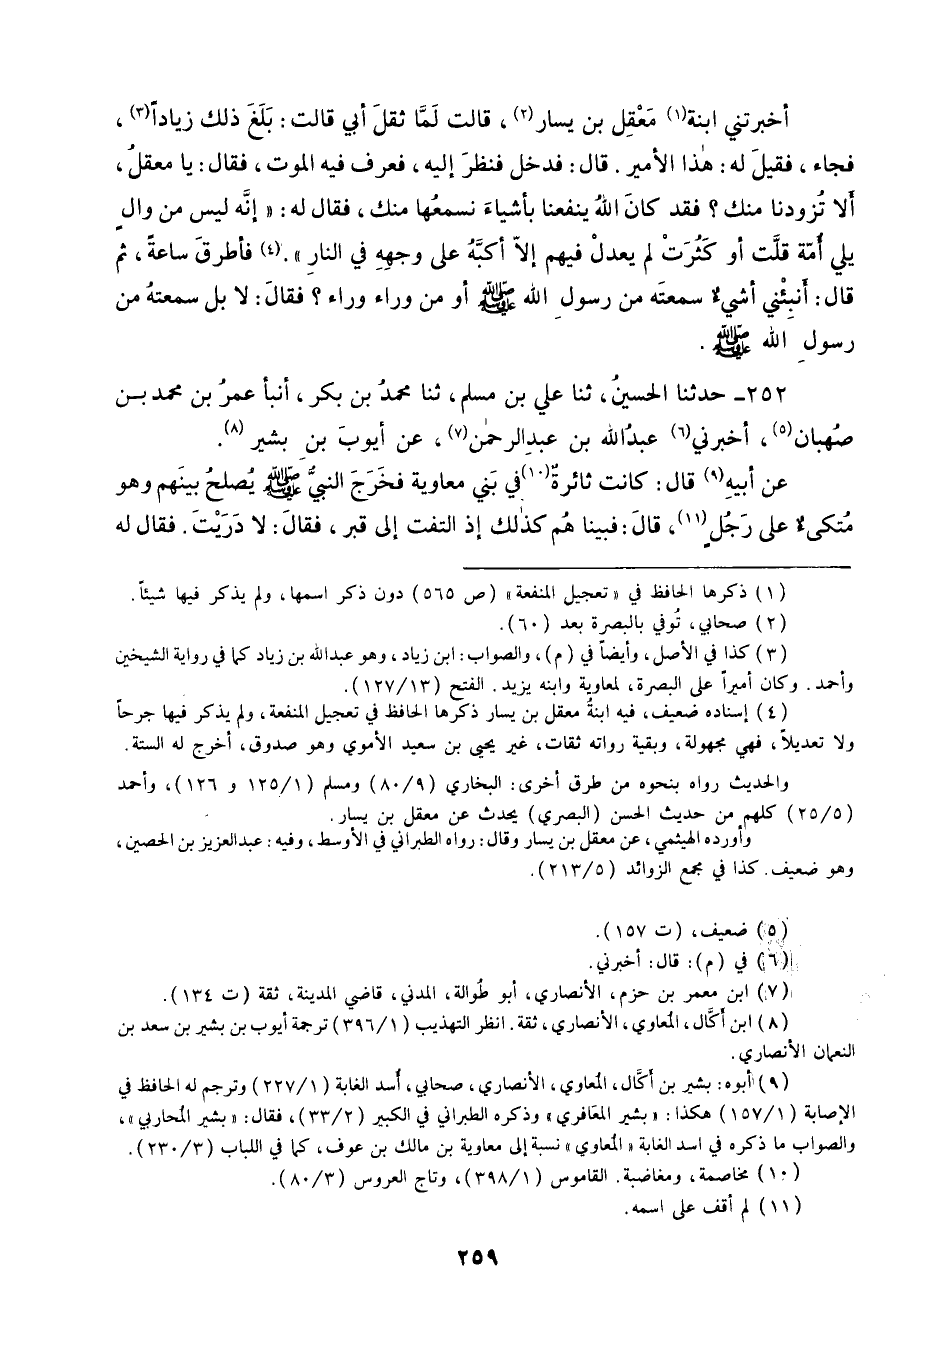 أخبرتني ابنة(١) مَعْقِل بن يسار(٢) ، قالت لَمَّا ثقلَ أبي قالت : بَلَغَ ذلك زياداً(٣) ،
فجاء ، فقيلَ له : هٰذا الأمير . قال : فدخل فنظرَ إليه ، فعرف فيه الموت ، فقال : يا معقلُ ،
أَلا تُزودنا منك ؟ فقد كانَ اللهُ ينفعنا بأشياءَ نسمعُها منك ، فقال له : « إنَّه ليس من والٍ
يلي أُمّة قلَّت أو كَثُرَتْ لم يعدلْ فيهم إلاّ أكبَّهُ على وجهِهِ في النارِ » .(٤) فأطرقَ ساعةً ، ثم
قال : أَنبِئْني أشيءٌ سمعتَه من رسولِ الله ﷺ أو من وراء وراء ؟ فقالَ : لا بل سمعتهُ من
رسولِ الله ﷺ .
٢٥٢ـ حدثنا الحسينُ ، ثنا علي بن مسلم ، ثنا محمدُ بن بكر ، أنبأ عمرُ بن محمد بـن
صُهبان(٥) ، أخبرني(٦) عبدُالله بن عبدِالرحمٰن(٧) ، عن أيوبَ بنِ بشير (٨).
عن أبيهِ(٩) قال : كانت ثائرةٌ(١٠)في بَني معاوية فخَرَجَ النبيُّ ﷺ يُصلحُ بينَهم وهو
مُتكىءٌ على رَجُلٍ(١١)، قالَ : فبينا هُم كذٰلك إذ التفت إلى قبر ، فقالَ : لا دَرَيْتَ . فقال له
(١) ذكرها الحافظ في « تعجيل المنفعة » (ص ٥٦٥) دون ذكر اسمها ، ولم يذكر فيها شيئاً .
(٢) صحابي ، تُوفي بالبصرة بعد (٦٠) .
(٣) كذا في الأصل ، وأيضاً في (م) ، والصواب : ابن زياد ، وهو عبدالله بن زياد كما في رواية الشيخين
وأحمد . وكان أميراً على البصرة ، لمعاوية وابنه يزيد . الفتح (١٣/ ١٢٧) .
(٤) إسناده ضعيف ، فيه ابنةُ معقل بن يسار ذكرها الحافظ في تعجيل المنفعة ، ولم يذكر فيها جرحاً
ولا تعديلاً ، فهي مجهولة ، وبقية رواته ثقات ، غير يحيى بن سعيد الأموي وهو صدوق ، أخرج له الستة .
والحديث رواه بنحوه من طرق أخرى : البخاري (٩/ ٨٠) ومسلم (١/ ١٢٥ و ١٢٦) ، وأحمد
(٥/ ٢٥) كلهم من حديث الحسن (البصري) يحدث عن معقل بن يسار .
وأورده الهيثمي ، عن معقل بن يسار وقال : رواه الطبراني في الأوسط ، وفيه : عبدالعزيز بن الحصين ،
وهو ضعيف . كذا في مجمع الزوائد (٥/ ٢١٣) .
(٥) ضعيف ، (ت ١٥٧) .
(٦) في (م) : قال : أخبرني .
(٧) ابن معمر بن حزم ، الأنصاري ، أبو طُوالة ، المدني ، قاضي المدينة ، ثقة (ت ١٣٤) .
(٨) ابن أكَّال ، المُعاوي ، الأنصاري ، ثقة . انظر التهذيب (١/ ٣٩٦) ترجمة أيوب بن بشير بن سعد بن
النعمان الأنصاري .
(٩) أبوه : بشير بن أكَّال ، المُعاوي ، الأنصاري ، صحابي ، أُسد الغابة (١/ ٢٢٧) وترجم له الحافظ في
الإصابة (١/ ١٥٧) هكذا : « بشير المعَافري » وذكره الطبراني في الكبير (٢/ ٣٣) ، فقال : « بشير المُحاربي » ،
والصواب ما ذكره في اسد الغابة « المُعاوي » نسبة إلى معاوية بن مالك بن عوف ، كما في اللباب (٣/ ٢٣٠) .
(١٠) مخاصمة ، ومغاضبة . القاموس (١/ ٣٩٨) ، وتاج العروس (٣/ ٨٠) .
(١١) لم أقف على اسمه .
٢٥٩